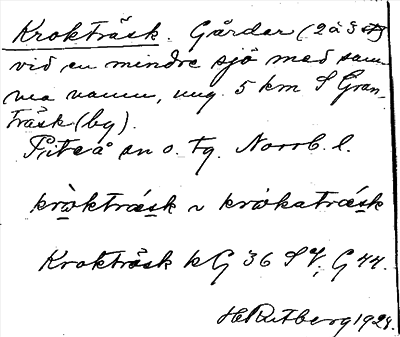 Krokträsk. Gårdar (2 à 3 st)
vid en mindre sjö med sam-
ma namn, ung. 5 km S Gran-
träsk (by).
Piteå sn o. tg. Norrb. l.
kròktræsk ~ kròkatræsk
Krokträsk kG 36 SV, G 44.
H Rutberg 1928.